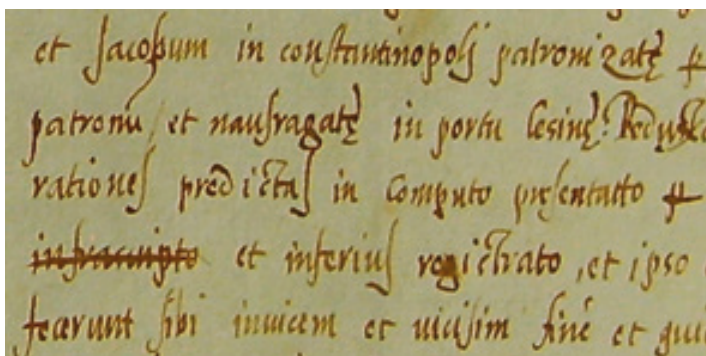 et Jacobum in constantinopoli patronizatę
patronū et naufragatę in portu Lesinę.
rationes predictas in computo presentatto
infrascripto et inferius registrato, et ipso
fecerunt sibi invicem et uicisim finē et